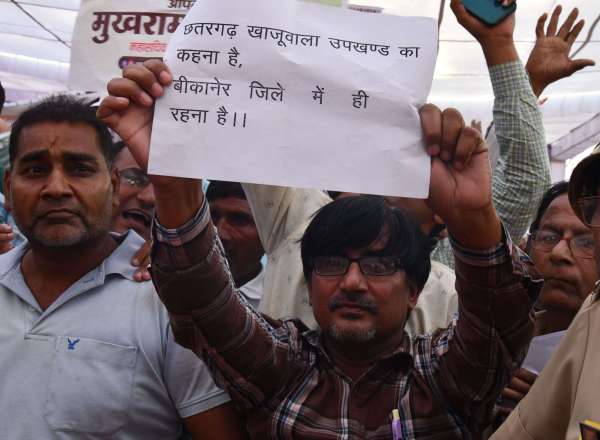 मुखराम
महासचिव
छतरगढ़ खाजूवाला उपखण्ड का
कहना है,
बीकानेर जिले में ही
रहना है।।